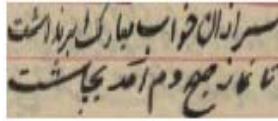 سر ازان خواب مبارک برنداشت
تا نماز صبحدم آمد بچاشت